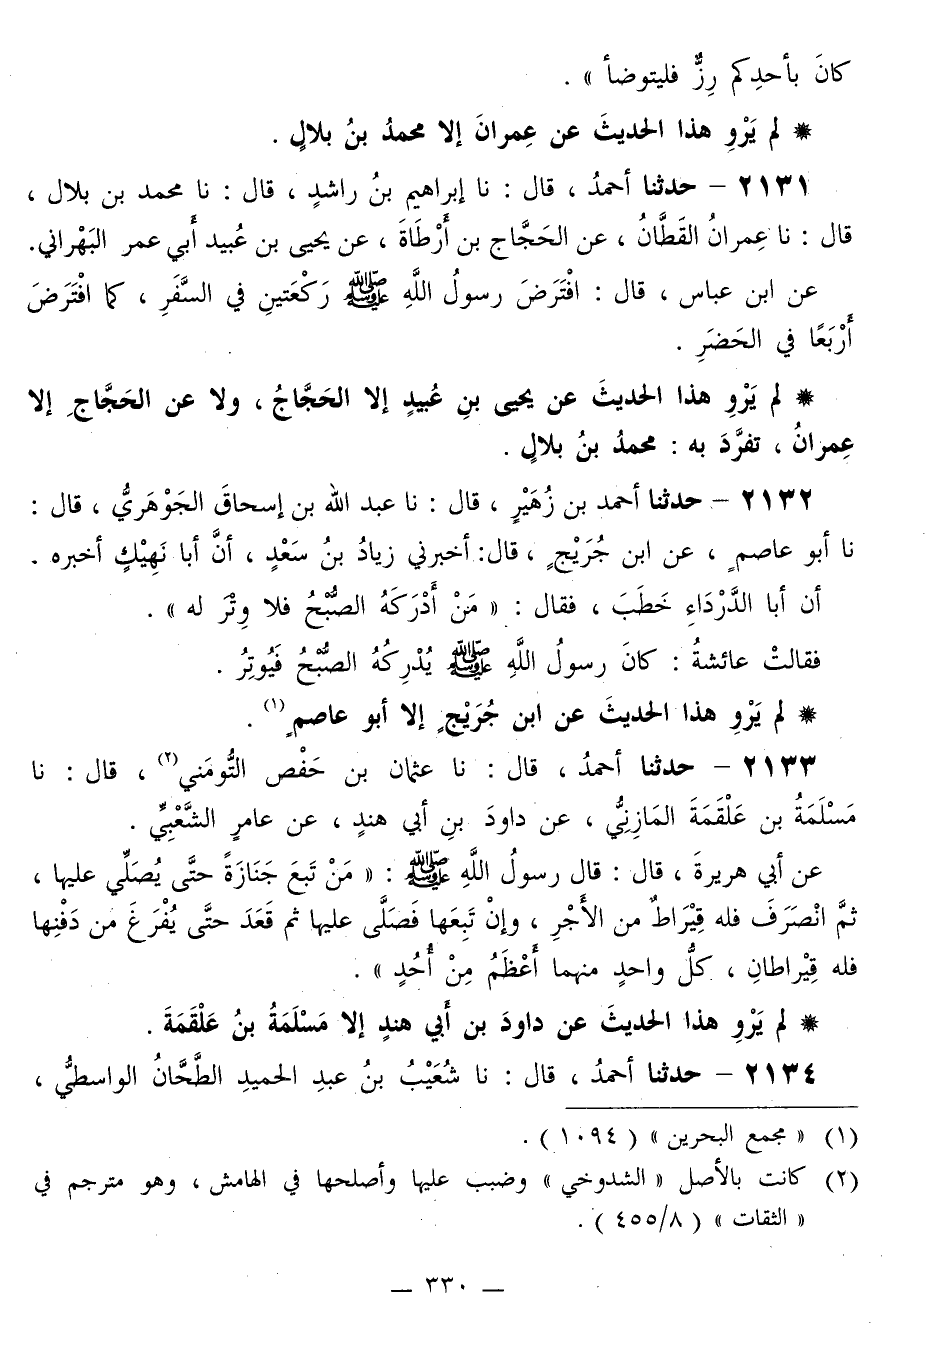 كانَ بأحدِكم رِزٌّ فليتوضأ » .
* لم يَرْوِ هذا الحديثَ عن عِمرانَ إلا محمدُ بنُ بلالٍ .
٢١٣١ – حدثنا أحمدُ ، قال : نا إبراهيم بنُ راشدٍ ، قال : نا محمد بن بلال ،
قال : نا عِمرانُ القَطَّانُ ، عن الحَجَّاج بن أَرْطَاةَ ، عن يحيى بن عُبيد أَبي عمر البَهْراني.
عن ابن عباس ، قال : افْتَرَضَ رسولُ اللَّهِ ﷺ رَكْعَتينِ في السَّفَرِ ، كما افْتَرَضَ
أَرْبَعًا في الحَضَرِ .
* لم يَرْوِ هذا الحديثَ عن يحيى بنِ عُبيدٍ إلا الحَجَّاجُ ، ولا عن الحَجَّاجِ إلا
عِمرانُ ، تفرَّدَ به : محمدُ بنُ بلالٍ .
٢١٣٢ – حدثنا أحمد بن زُهَيْرٍ ، قال : نا عبد الله بن إسحاقَ الجَوْهَرِيُّ ، قال :
نا أبو عاصمٍ ، عن ابن جُرَيْجٍ ، قال: أخبرني زيادُ بنُ سَعْدٍ ، أنَّ أبا نَهِيْكٍ أخبره .
أن أبا الدَّرْدَاءِ خَطَبَ ، فقال : « مَنْ أَدْرَكَهُ الصُّبْحُ فلا وِتْرَ له » .
فقالتْ عائشةُ : كانَ رسولُ اللَّهِ ﷺ يُدْرِكُهُ الصُّبْحُ فَيُوتِرُ .
* لم يَرْوِ هذا الحديثَ عن ابن جُرَيْجٍ إلا أبو عاصمٍ(١) .
٢١٣٣ – حدثنا أحمدُ ، قال : نا عثمان بن حَفْص التُّومَني(٢) ، قال : نا
مَسْلَمَةُ بن عَلْقَمَةَ المَازِنِيُّ ، عن داودَ بنِ أبي هندٍ ، عن عامرٍ الشَّعْبِيِّ .
عن أبي هريرةَ ، قال : قال رسولُ اللَّهِ ﷺ : « مَنْ تَبِعَ جَنَازَةً حتَّى يُصَلِّي عليها ،
ثمَّ انْصَرَفَ فله قِيْرَاطٌ من الأَجْرِ ، وإنْ تَبِعَها فَصَلَّى عليها ثم قَعَدَ حتَّى يُفْرَغَ من دَفْنِها
فله قِيْراطانِ ، كلُّ واحدٍ منهما أَعْظَمُ مِنْ أُحُدٍ » .
* لم يَرْوِ هذا الحديثَ عن داودَ بن أَبي هندٍ إلا مَسْلَمَةُ بنُ عَلْقَمَةَ .
٢١٣٤ – حدثنا أحمدُ ، قال : نا شُعَيْبُ بنُ عبدِ الحميدِ الطَّحَّانُ الواسطيُّ ،
(١) « مجمع البحرين » ( ١٠٩٤ ) .
(٢) كانت بالأصل « الشدوخي » وضبب عليها وأصلحها في الهامش ، وهو مترجم في
« الثقات » ( ٤٥٥/٨ ) .
— ٣٣٠ —